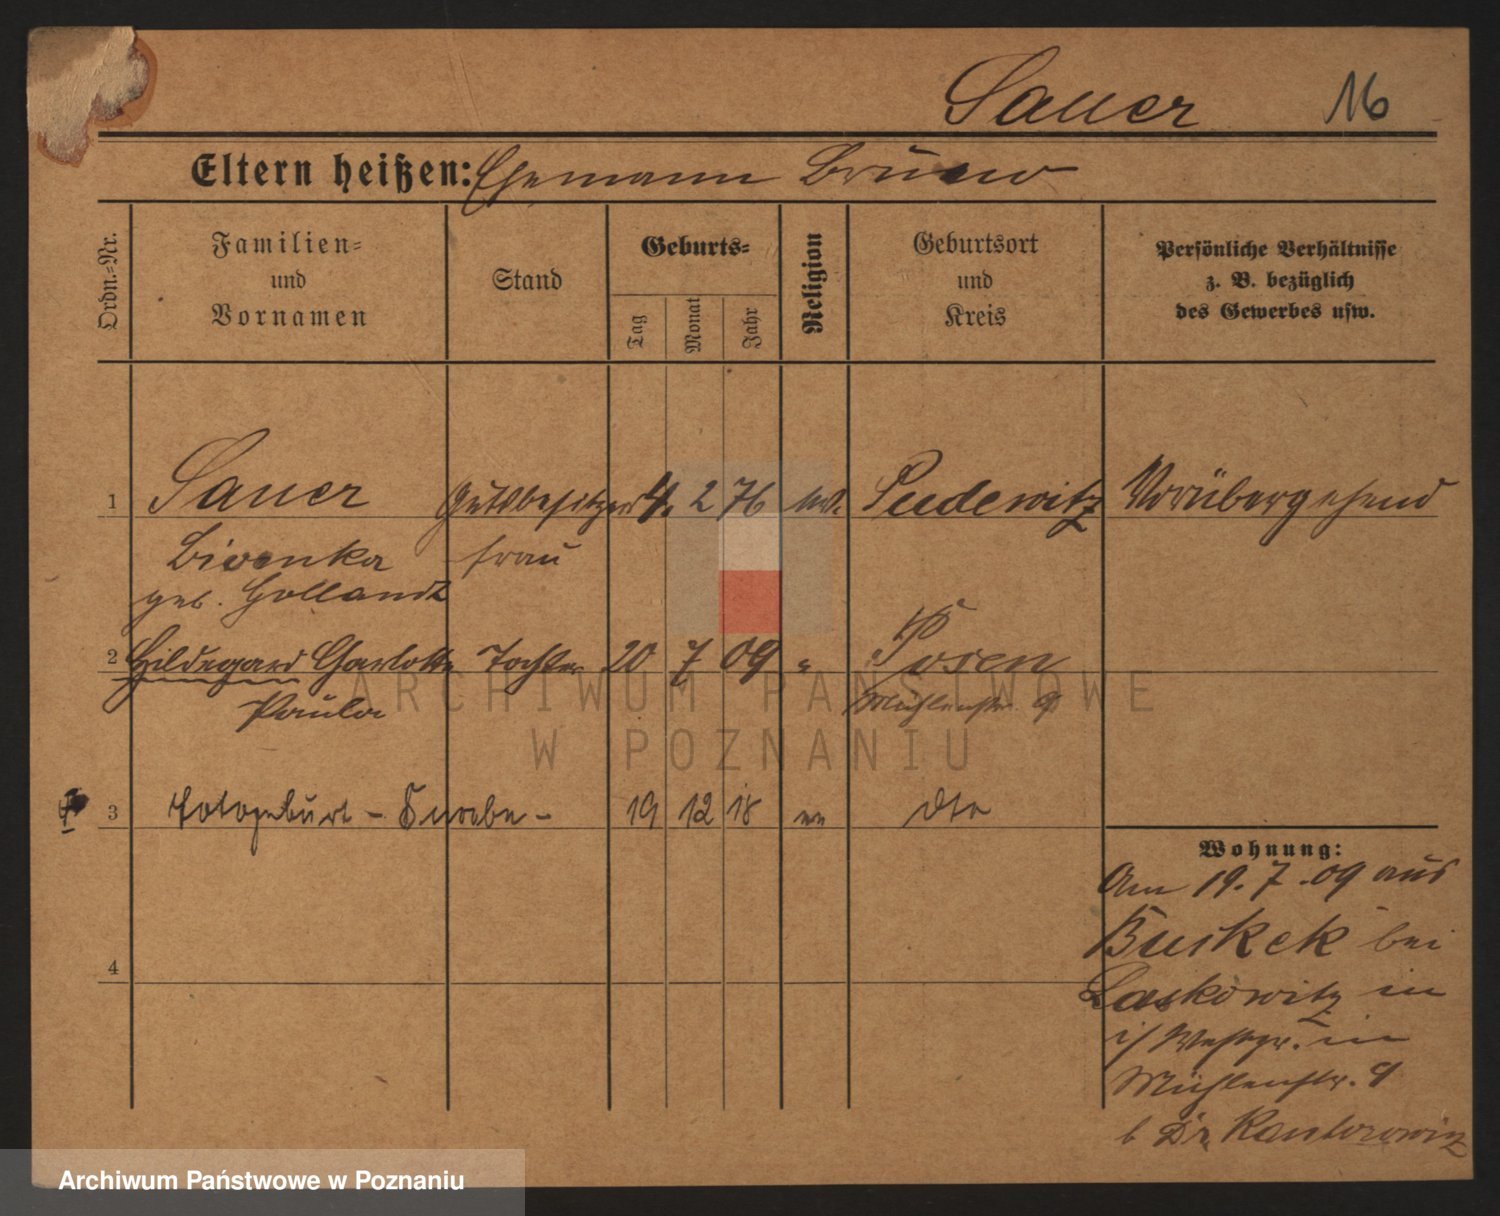 Sauer 16
Eltern heißen: Ehemann Bruno
Ordn.=Nr.
Familien=
und
Vornamen
Stand
Geburts=
Tag
Monat
Jahr
Religion
Geburtsort
und
Kreis
Persönliche Verhältnisse
z. B. bezüglich
des Gewerbes usw.
1 Sauer Gutsbesitzer 4. 2 76 Pudewitz Vorübergehend
Bianka frau
geb. Hollandt
2 Hildegard Charlotte Tochter 20 7 09 " Posen
Paula Mühlenstr. 9
3 Totgeburt - Knabe - 19 12 18 dto
4
Wohnung:
Am 19.7.09 aus
Buskek bei
Laskowitz in
i/ Westpr. in
Mühlenstr. 9
b Dr. Kantorowicz
ARCHIWUM PAŃSTWOWE
W POZNANIU
Archiwum Państwowe w Poznaniu